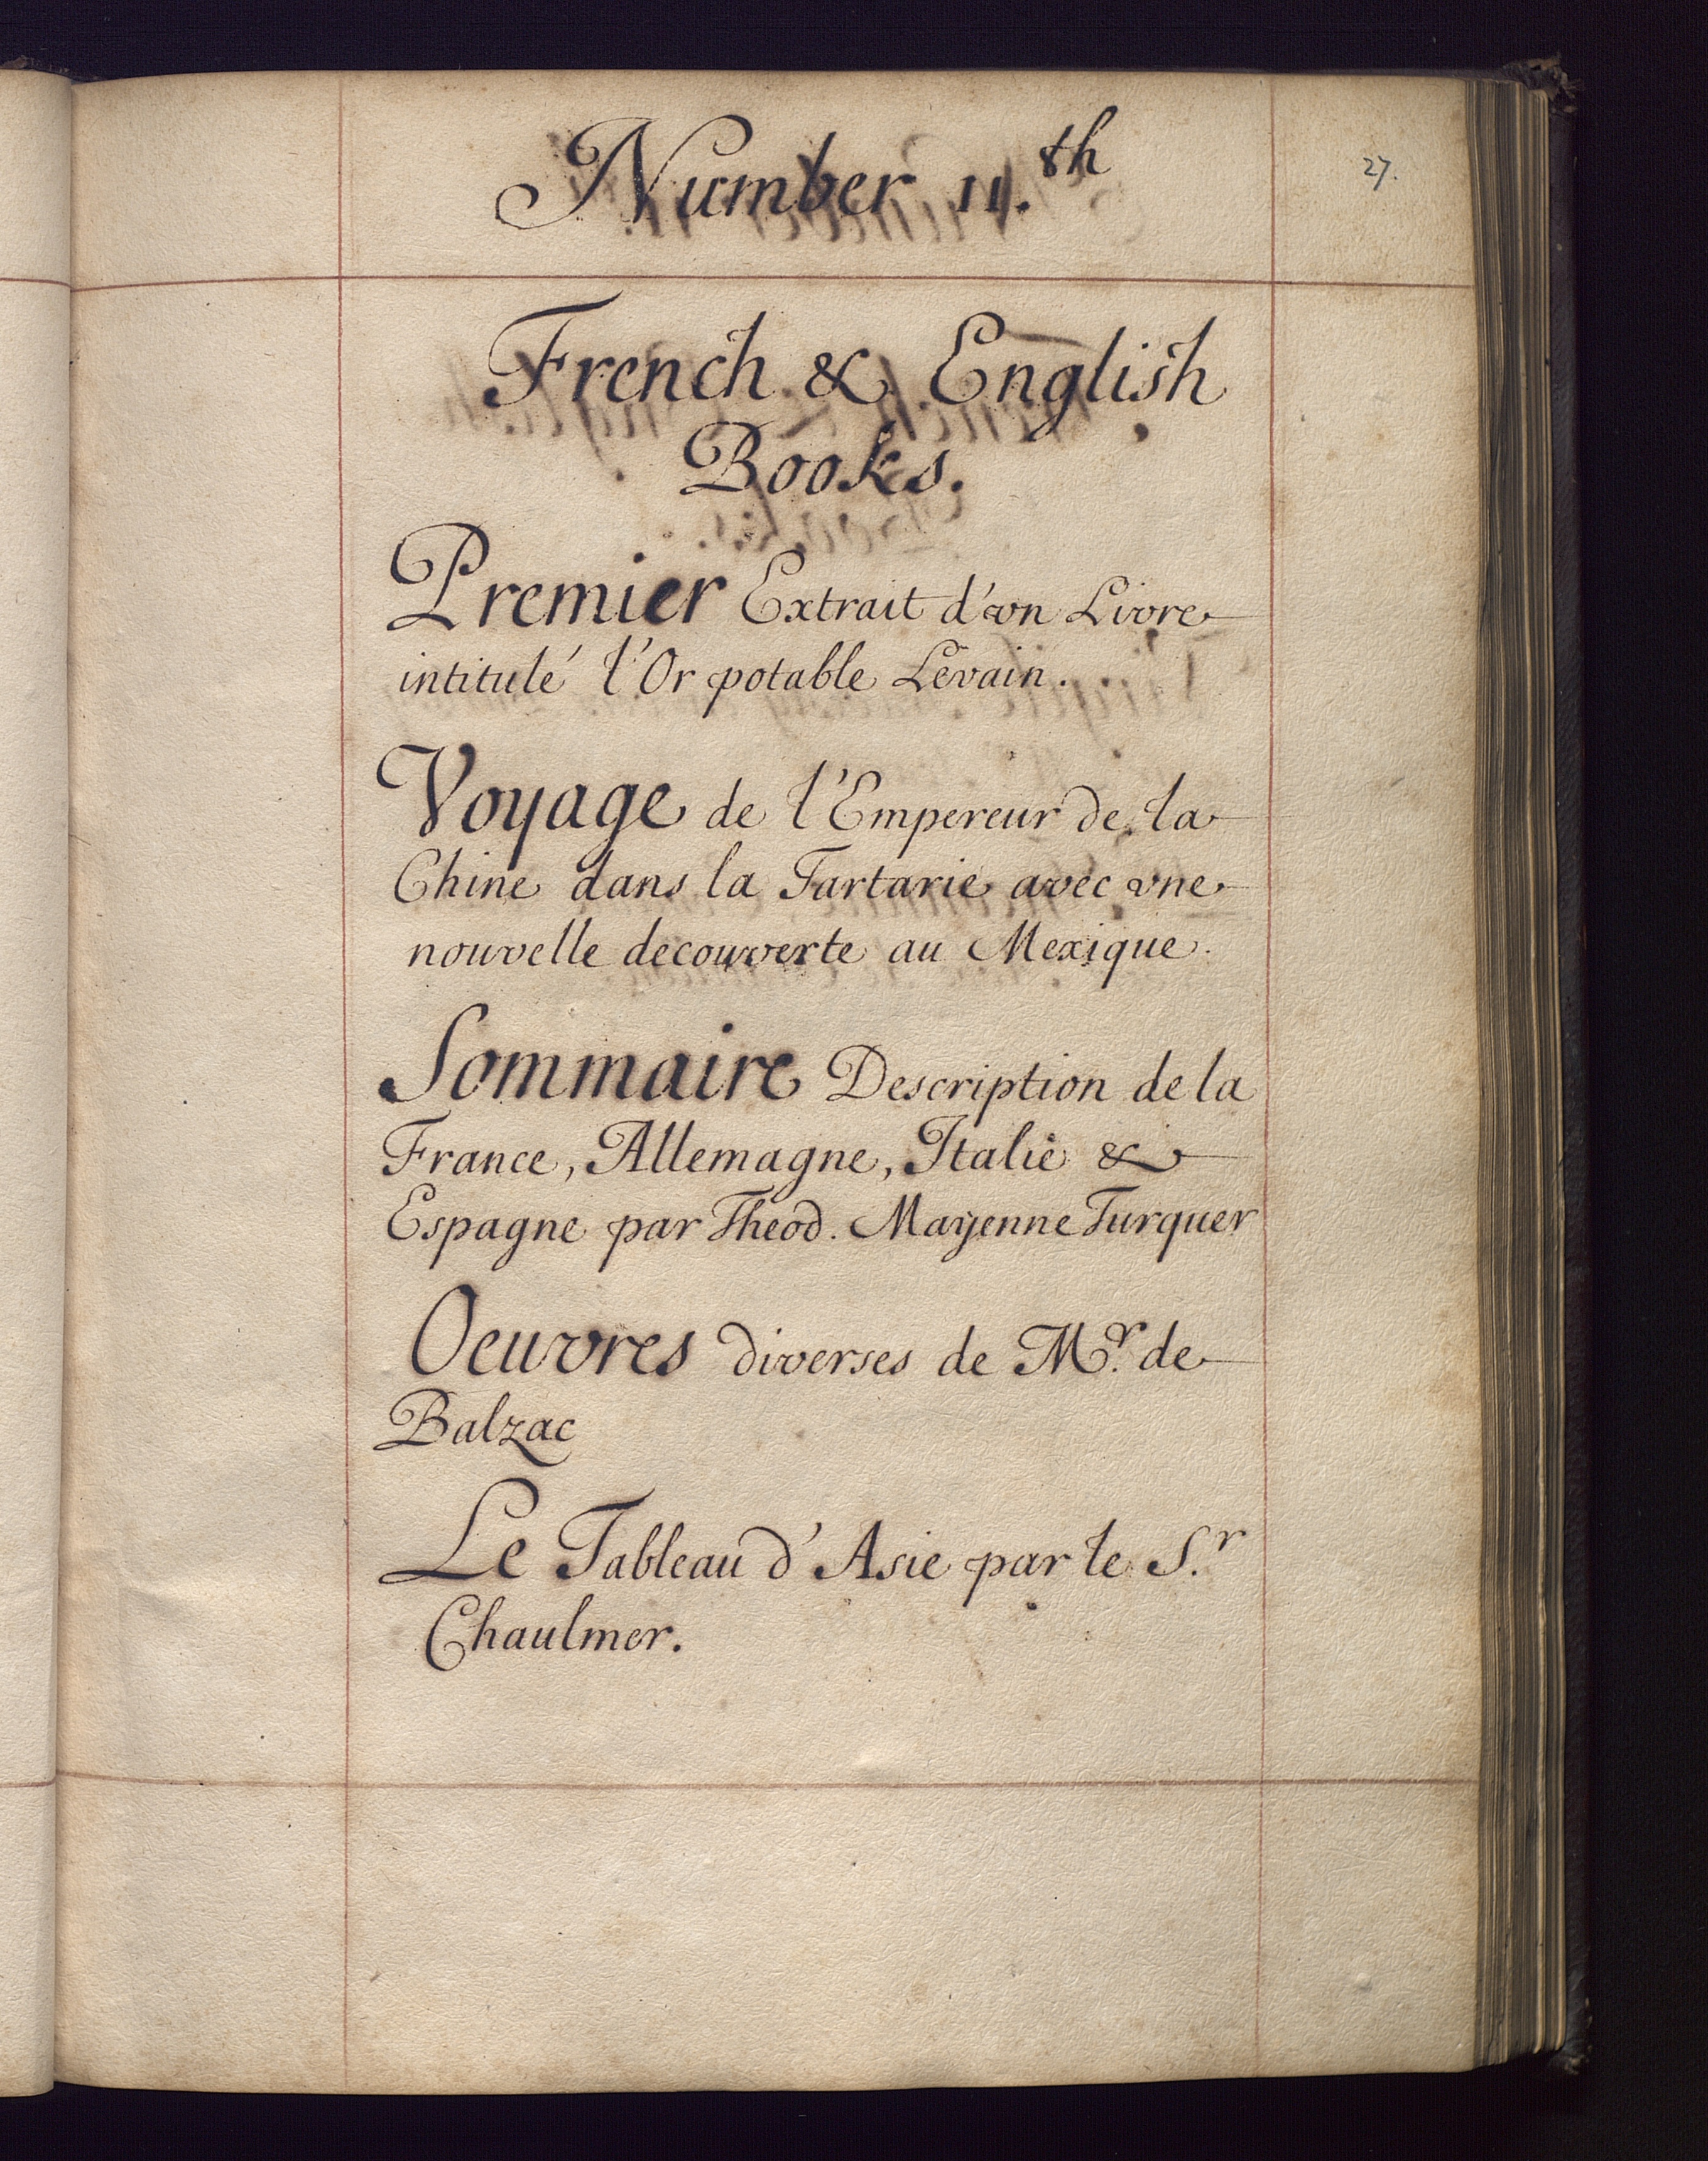 Number 11.th
27.
French & English
Books.
Premier Extrait d'vn Livre
intitulé l'Or potable Levain.
Voyage de l'Empereur de la
Chine dans la Tartarie avec vne
nouvelle decouverte au Mexique.
Sommaire Description de la
France, Allemagne, Italie &
Espagne par Theod. Mayenne Turquer
Oeuvres diverses de Mr. de
Balzac
Le Tableau d'Asie par le S.r
Chaulmer.